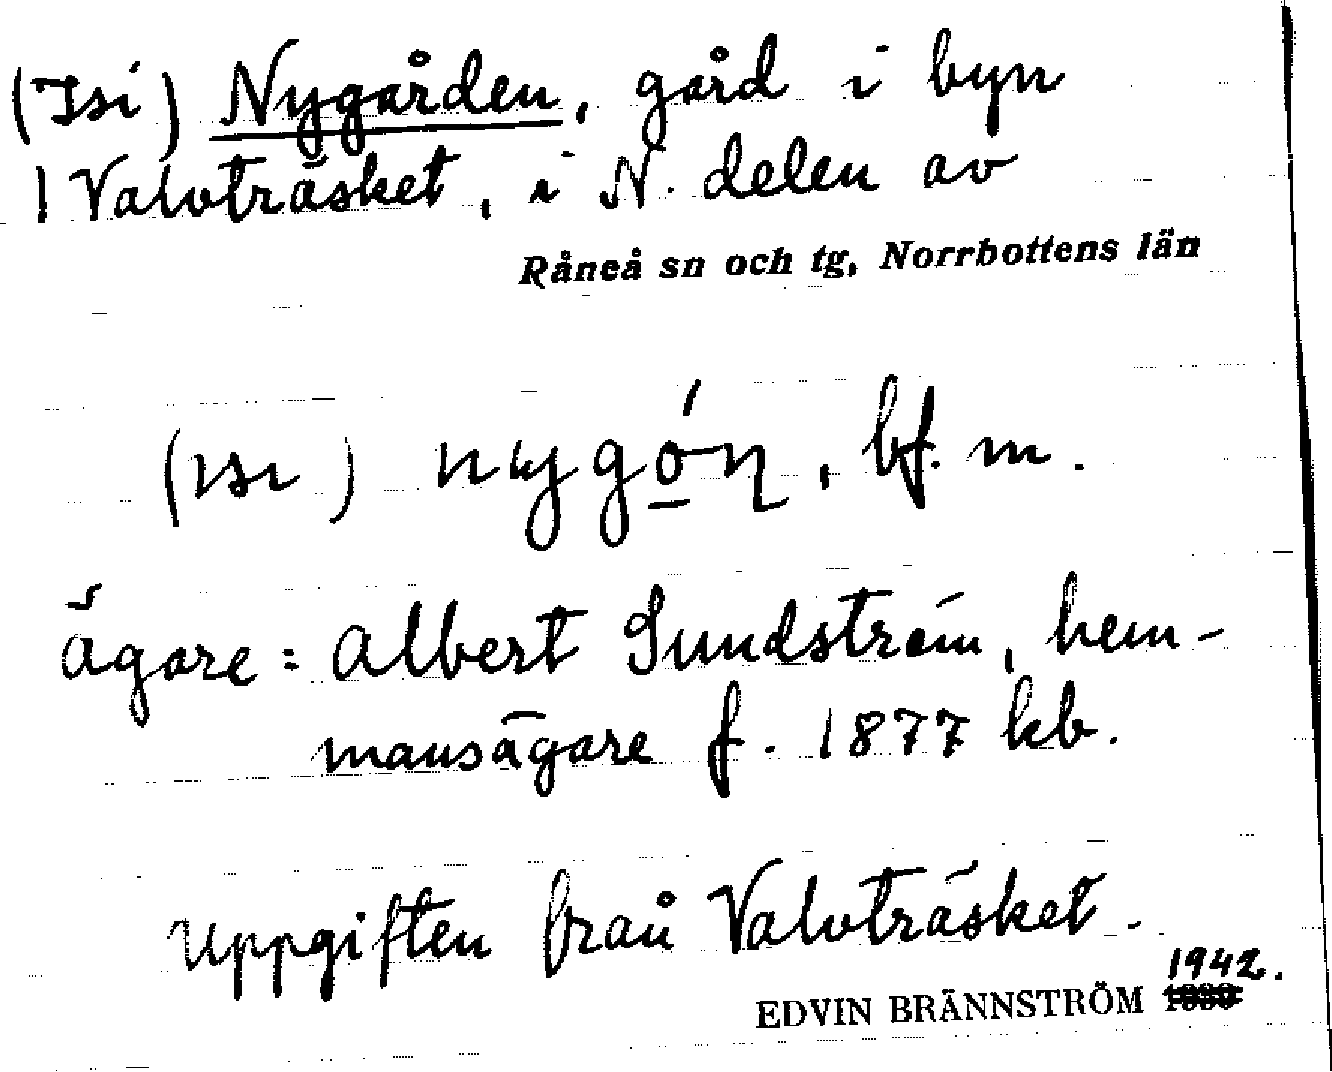 (Isi) Nygården, gård i byn
| Valvträsket, i N. delen av
Råneå sn och tg, Norrbottens län
(ısı) nygó̲ŋ, bf. m.
Ägare: Albert Sundström, hem-
mansägare f. 1877 kb.
Uppgiften från Valvträsket.
1942.
EDVIN BRÄNNSTRÖM